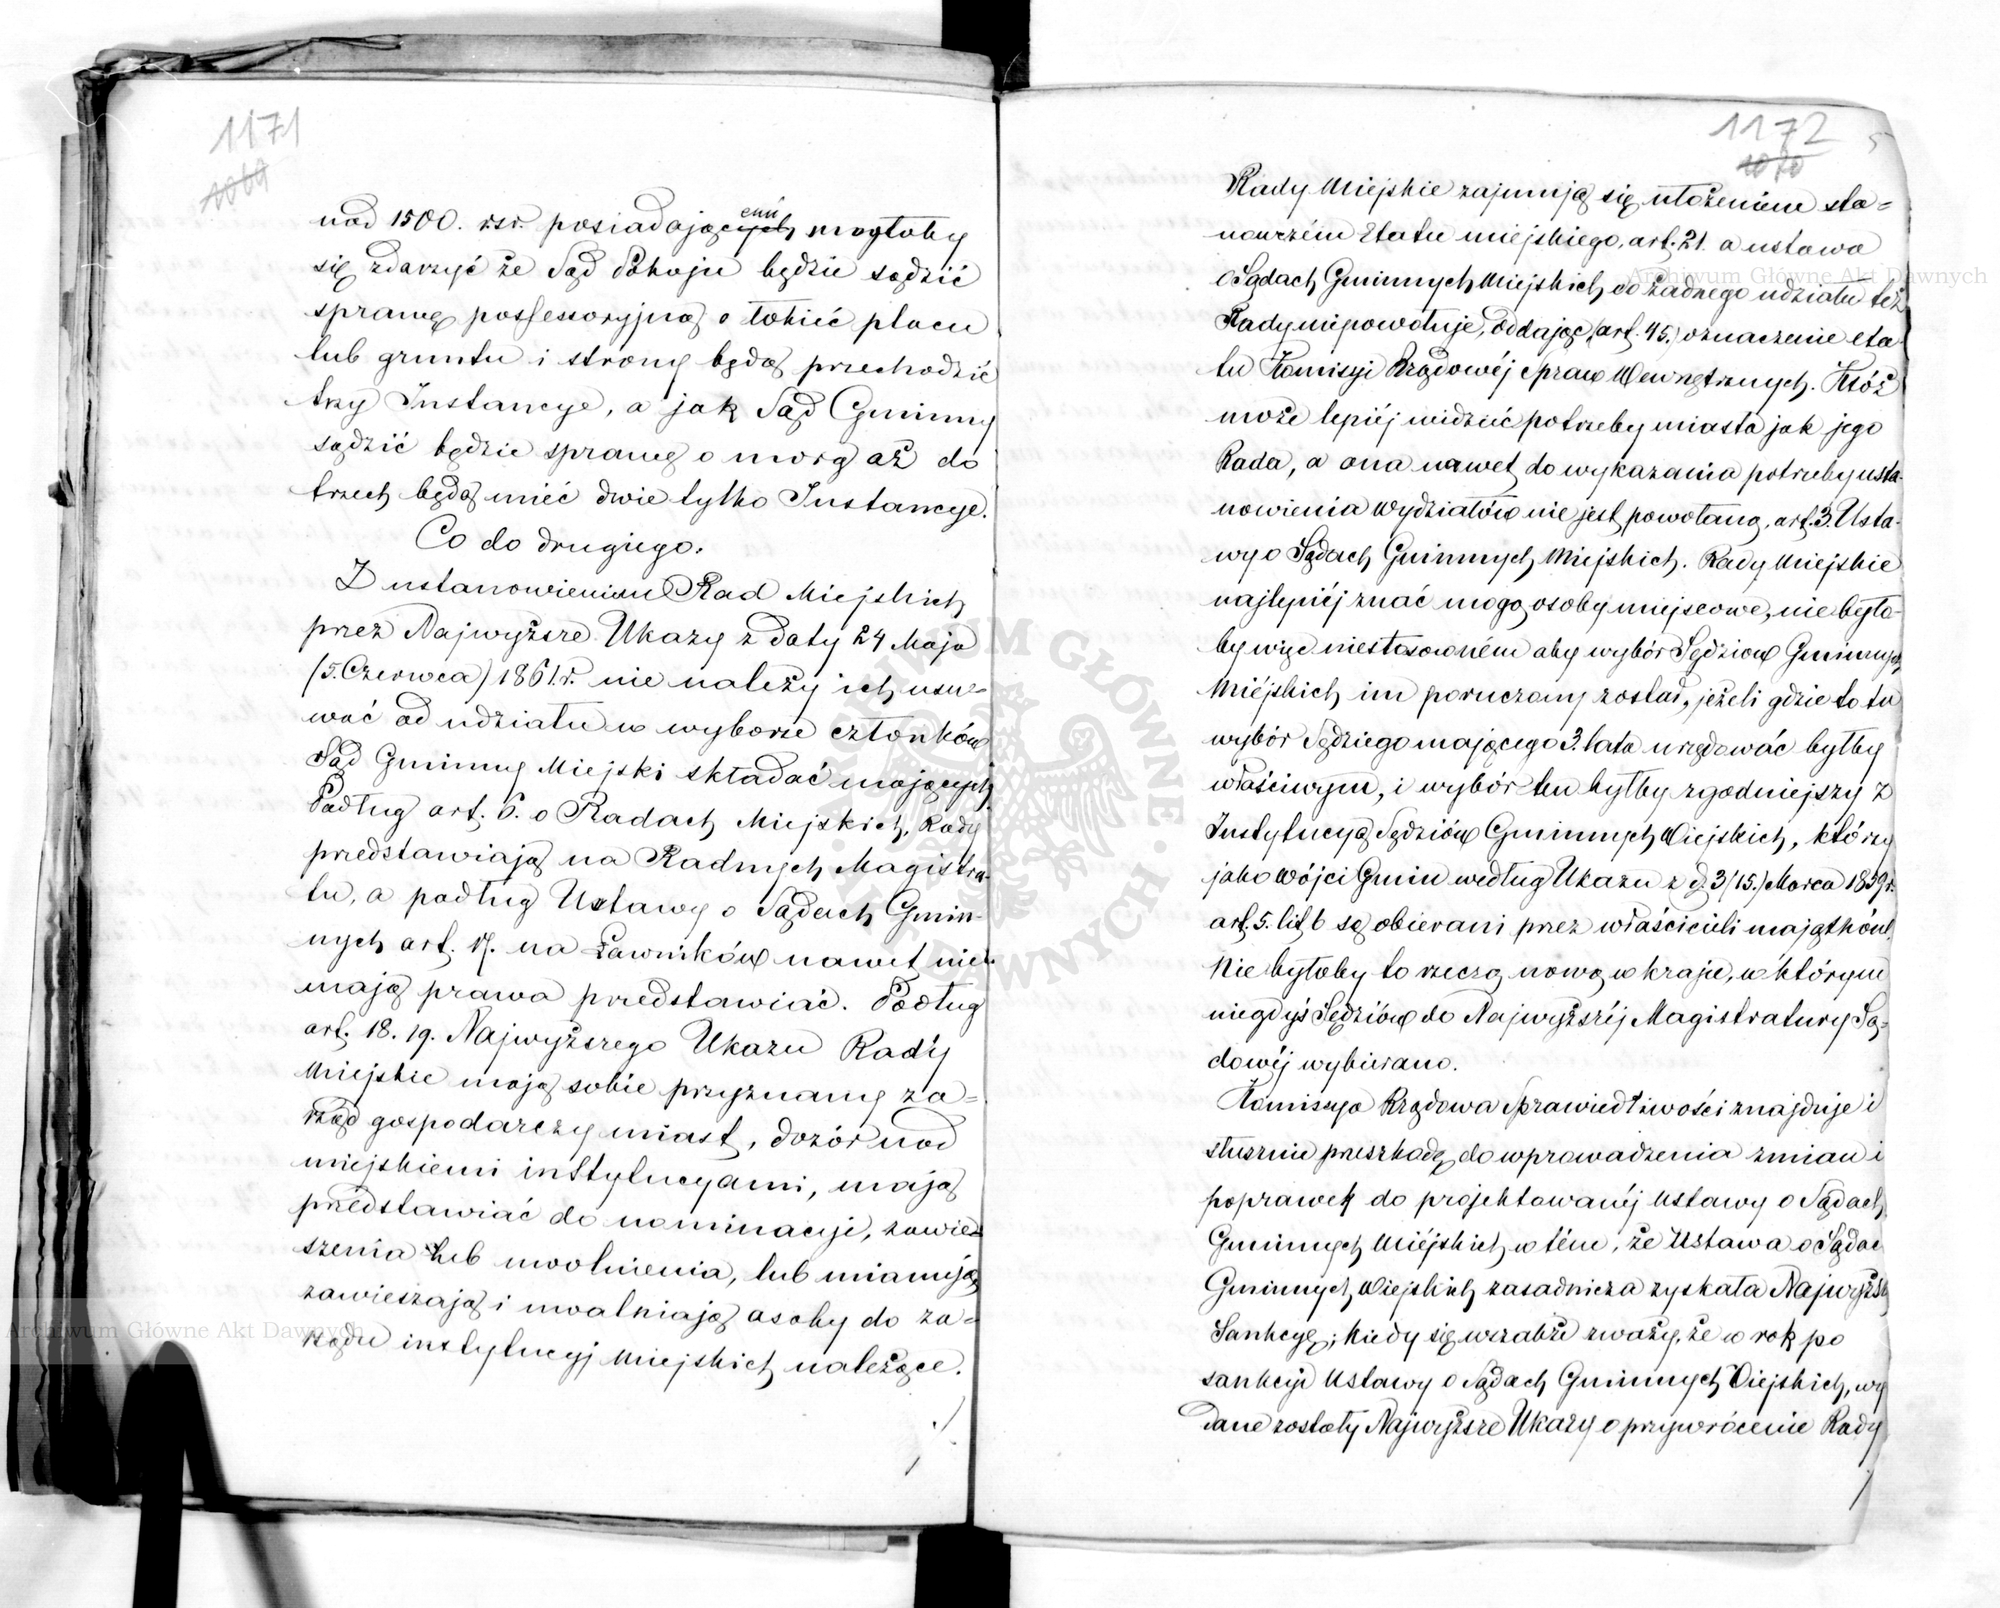 1171
1069
nad 1500. rsr. posiadającychemi mogłoby
się zdarzyć że Sąd Pokoju będzie sądzić
sprawę possessoryjną o łokieć placu
lub gruntu i strony będą przechodzić
trzy Instancye, a jak Sąd Gminny
sądzić będzie sprawę o morg aż do
trzech będą mieć dwie tylko Instancye.
Co do drugiego.
Z ustanowieniem Rad Miejskich
przez Najwyższe Ukazy z daty 24 Maja
(5. Czerwca) 1861. r. nie należy ich usu=
wać od udziału w wyborze członków
Sąd Gminny Miejski składać mających
Podług art. 6. o Radach Miejskich, Rady
przedstawiają na Radnych Magistra-
tu, a podług Ustawy o Sądach Gmin-
nych art. 17. na Ławników nawet nie
mają prawa przedstawiać. Podług
art. 18. 19. Najwyższego Ukazu Rady
Miejskie mają sobie przyznany za=
rząd gospodarczy miast, dozór nad
miejskiemi instytucyami, mają
przedstawiać do nominacyi, zawie=
szenia lub uwolnienia, lub mianują
zawieszają i uwalniają osoby do za=
rządu instytucyj Miejskich należące.
1172
1070
Rady Miejskie zajmują się ułożeniem sta=
nowczém Etatu miejskiego, art. 21. a ustawa
o Sądach Gminnych Miejskich do żadnego udziału też
Rady niepowołuje, oddając (art. 45.) oznaczenie eta-
tu Komisyi Rządowéj Spraw Wewnętrznych. Któż
może lepiéj widzieć potrzeby miasta jak jego
Rada, a ona nawet do wykazania potrzeby usta-
nowienia Wydziałów nie jest powołaną, art. 3. Usta-
wy o Sądach Gminnych Miejskich. Rady Miejskie
najlepiéj znać mogą osoby miejscowe, nie było-
by więc niestosowném aby wybór Sędziów Gminnych
Miéjskich im poruczony został, jeżeli gdzie to tu
wybór Sędziego mającego 3. lata urzędować byłby
właściwym, i wybór ten byłby zgodniejszy z
Instytucyą Sędziów Gminnych Wiejskich, którzy
jako Wójci Gmin według Ukazu z d. 3/(15.) Marca 1859 r.
art. 5. lit b są obierani przez właścicieli majątków.
Nie byłoby to rzeczą nową w kraju, w którym
niegdyś Sędziów do Najwyższéj Magistratury Są=
dowéj wybierano.
Komisya Rządowa Sprawiedliwości znajduje i
słusznie przeszkodę do wprowadzenia zmian i
poprawek do projektowanéj Ustawy o Sądach
Gminnych Miéjskich w tém, że Ustawa o Sądac
Gminnych Wiejskich zasadnicza zyskała Najwyższ
Sankcyę; kiedy się wszakże zważy, że w rok po
sankcyi Ustawy o Sądach Gminnych Wiejskich, wy
dane zostały Najwyższe Ukazy o przywrócenie Rady
Archiwum Główne Akt Dawnych
Archiwum Główne Akt Dawnych
ARCHIWUM GŁÓWNE AKT DAWNYCH